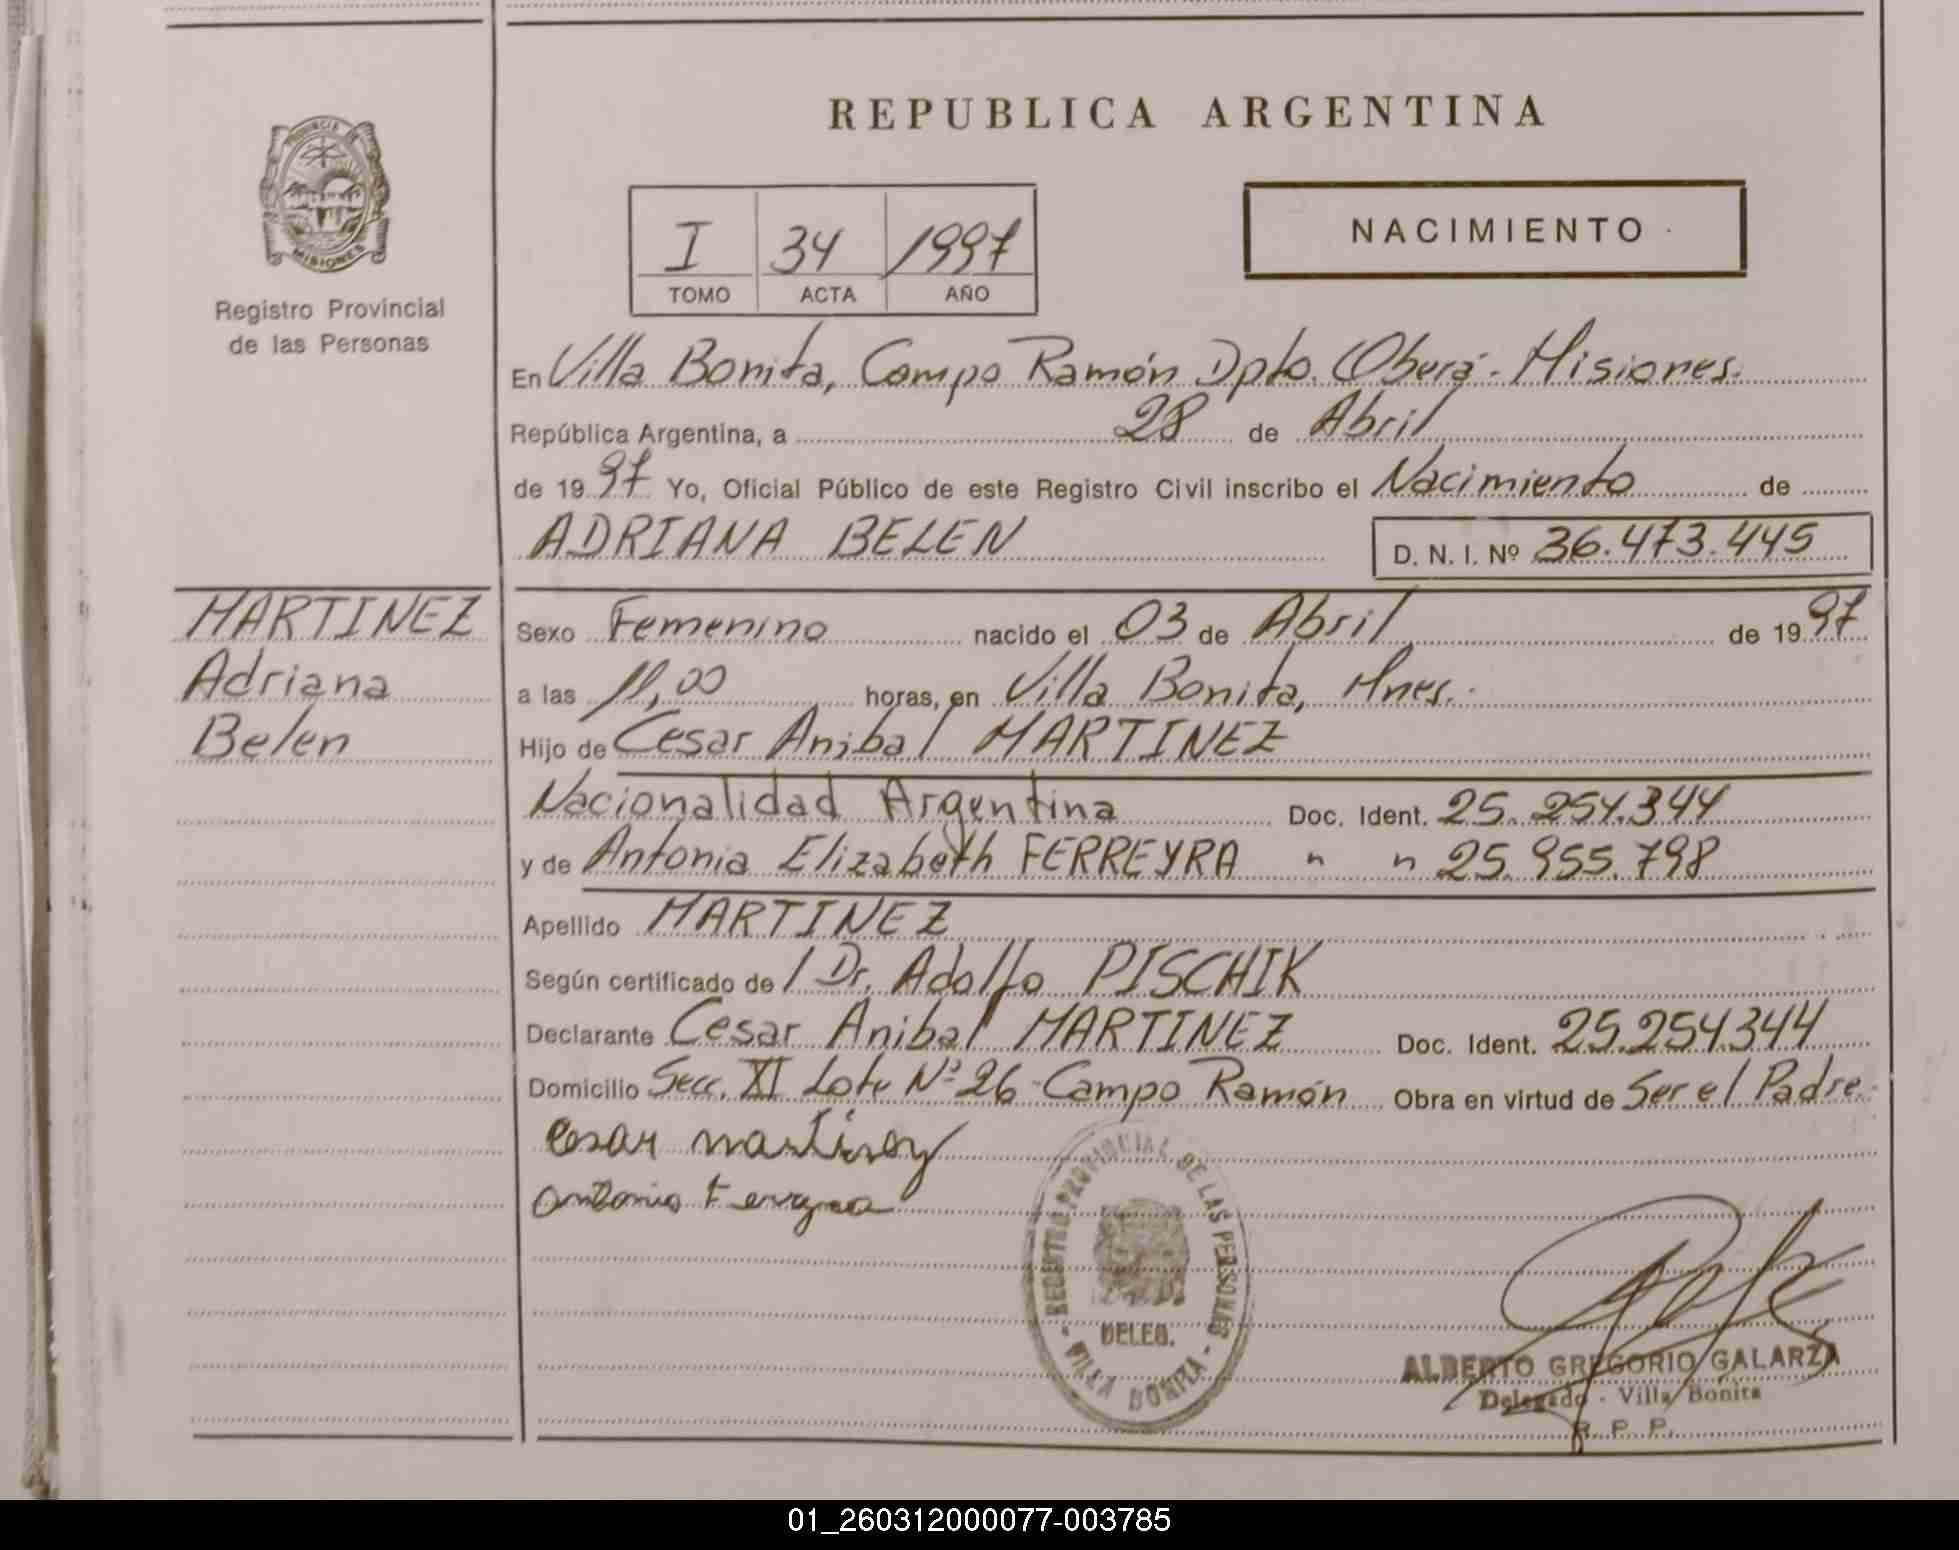 REPUBLICA ARGENTINA
PROVINCIA DE
MISIONES
Registro Provincial
de las Personas
I 34 1997
TOMO ACTA AÑO
NACIMIENTO
En Villa Bonita, Campo Ramón Dpto. Oberá - Misiones.
República Argentina, a 28 de Abril
de 1997 Yo, Oficial Público de este Registro Civil inscribo el Nacimiento de
ADRIANA BELEN D. N. I. Nº 36.473.445
MARTINEZ
Adriana
Belen
Sexo Femenino nacido el 03 de Abril de 1997
a las 11,00 horas, en Villa Bonita, Mnes.
Hijo de Cesar Anibal MARTINEZ
Nacionalidad Argentina Doc. Ident. 25.254.344
y de Antonia Elizabeth FERREYRA " " 25.955.798
Apellido MARTINEZ
Según certificado de / Dr. Adolfo PISCHIK
Declarante Cesar Anibal MARTINEZ Doc. Ident. 25.254.344
Domicilio Secc. XI Lote Nº 26 - Campo Ramón Obra en virtud de Ser el Padre.
Cesar Martinez
Antonia Ferreyra
REGISTRO PROVINCIAL DE LAS PERSONAS
DELEG.
- VILLA BONITA -
ALBERTO GREGORIO GALARZA
Delegado - Villa Bonita
R. P. P.
01_260312000077-003785